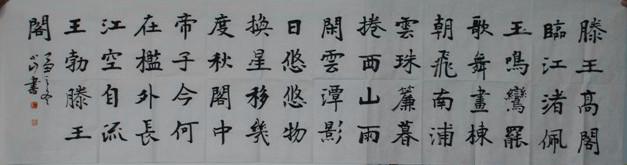 滕王高閣
臨江渚佩
玉鳴鸞罷
歌舞畫棟
朝飛南浦
雲珠簾暮
捲西山雨
閑雲潭影
日悠悠物
換星移幾
度秋閣中
帝子今何
在檻外長
江空自流
王勃滕王
閣
書